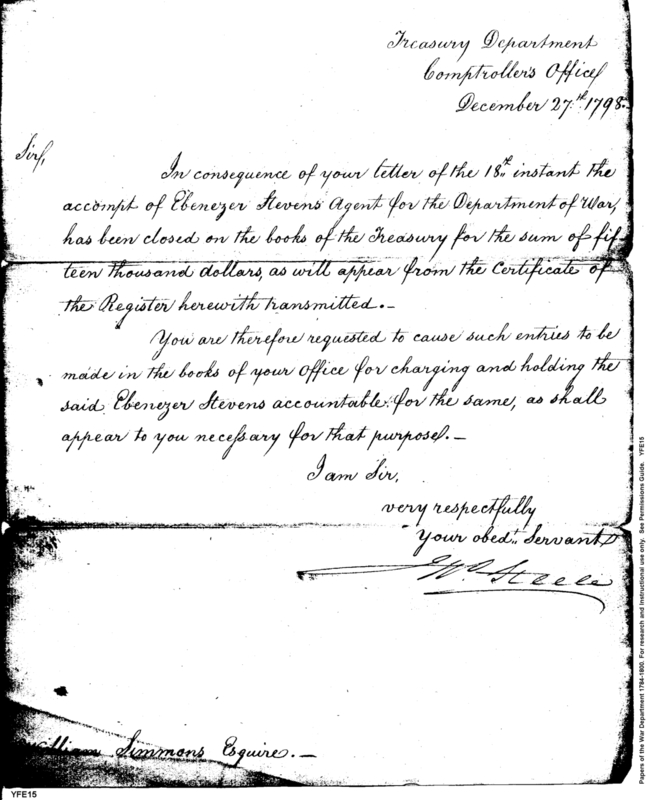 Treasury Department
Comptroller's Office
December 27.th 1798.
Sir,
In consequence of your letter of the 18th instant the
accompt of Ebenezer Stevens Agent for the Department of War,
has been closed on the books of the Treasury for the sum of fif-
teen thousand dollars, as will appear from the Certificate of
the Register herewith transmitted.-
You are therefore requested to cause such entries to be
made in the books of your Office for charging and holding the
said Ebenezer Stevens accountable for the same, as shall
appear to you necessary for that purpose.-
I am Sir,
very respectfully
Your obedt. Servant
Jno. Steele
William Simmons Esquire.-
YFE15
Papers of the War Department 1784-1800. For research and instructional use only. See Permissions Guide. YFE15